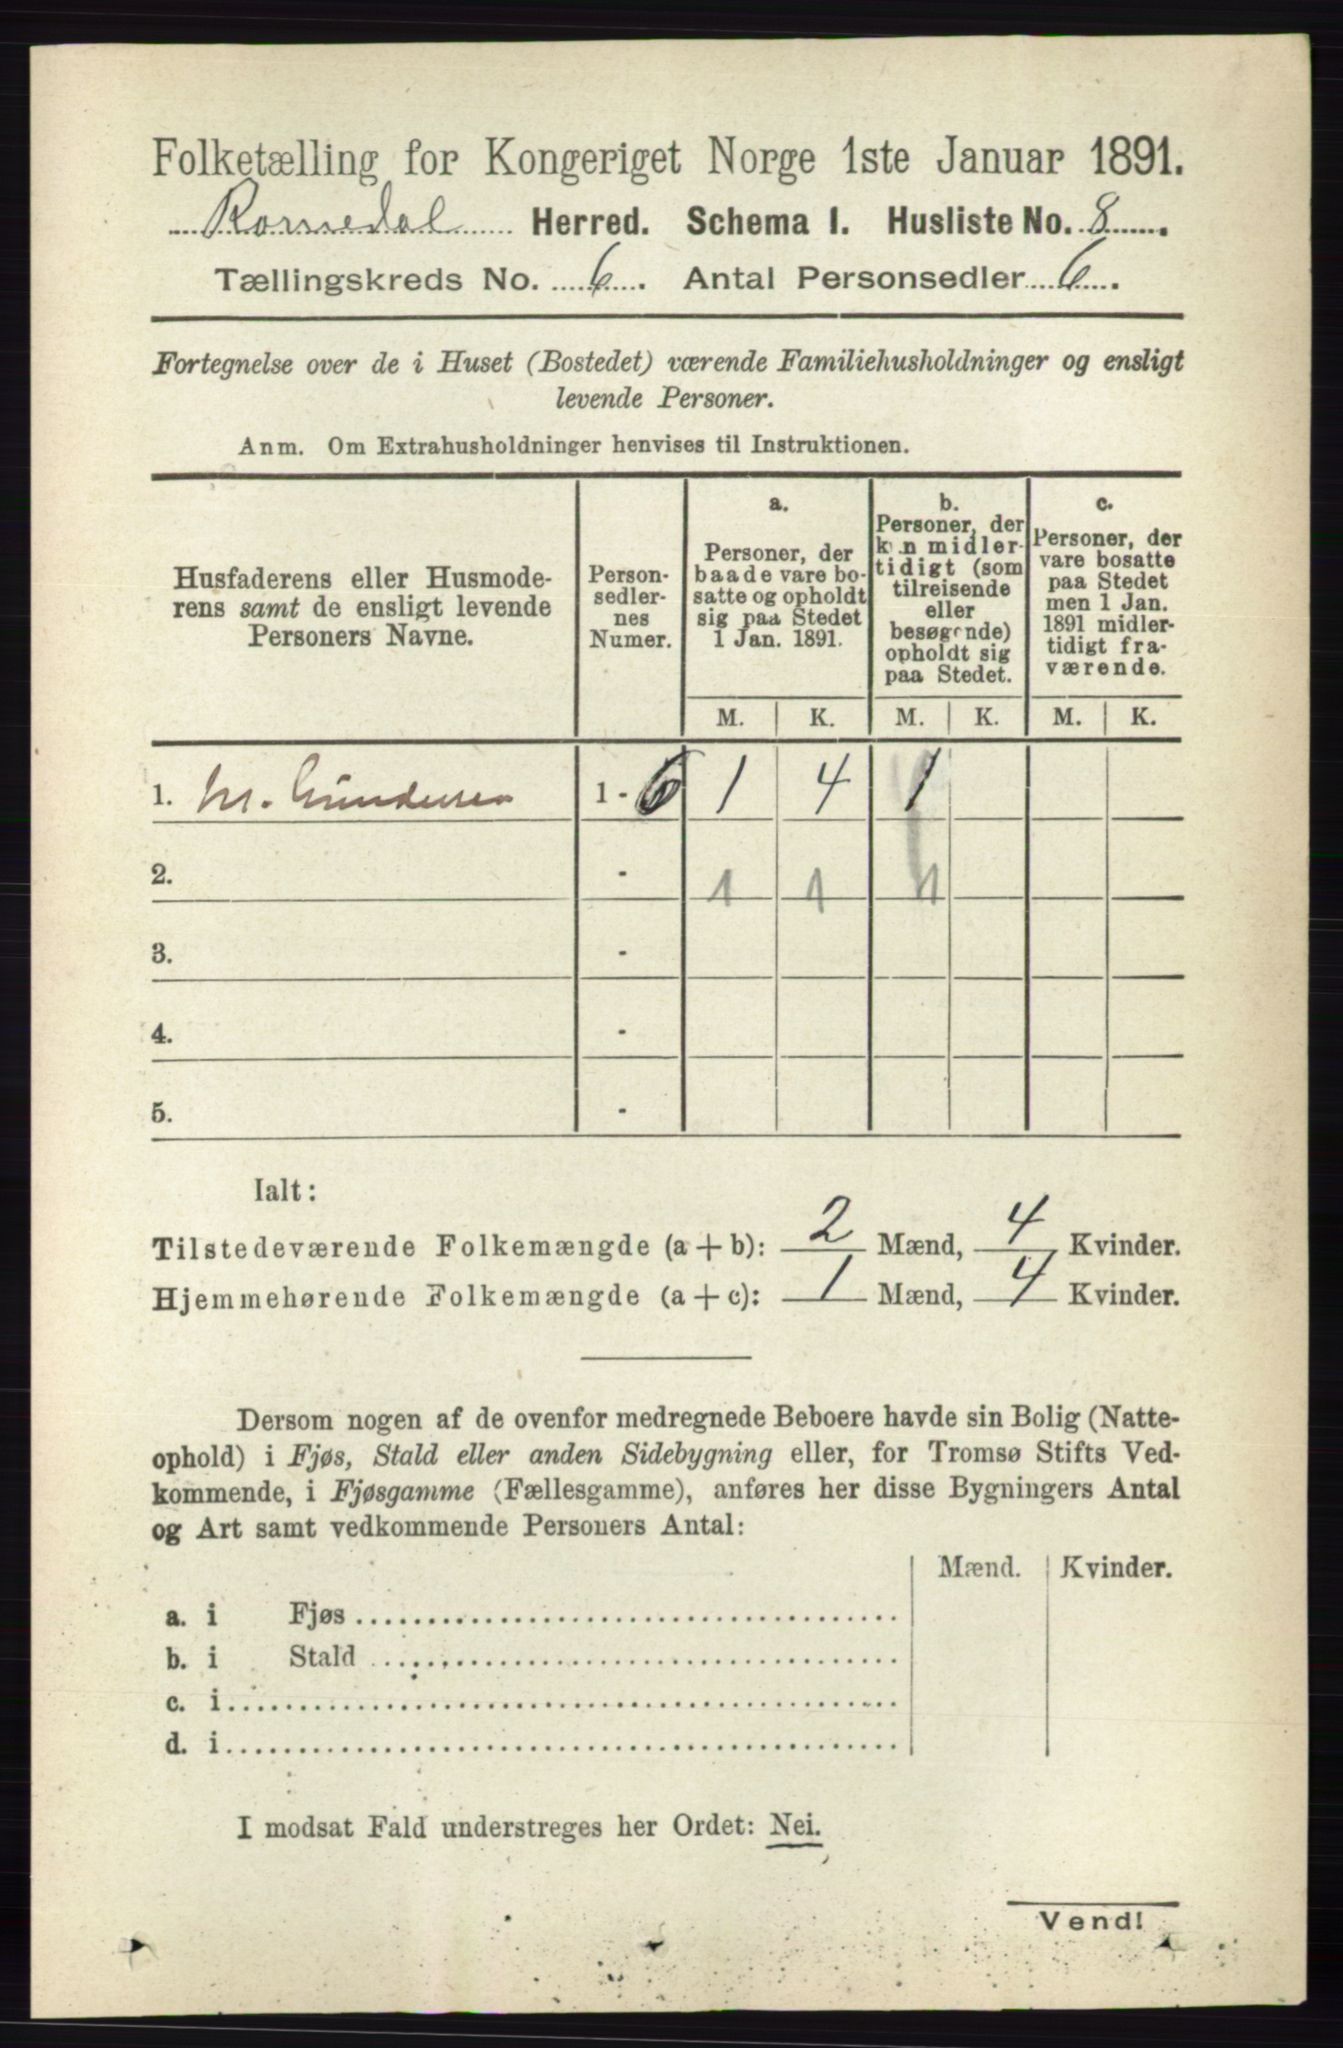 Folketælling for Kongeriget Norge 1ste Januar 1891.
Romedal Herred. Schema 1. Husliste No. 8.
Tællingskreds No. 6. Antal Personsedler 6.
Fortegnelse over de i Huset (Bostedet) værende Familiehusholdninger og ensligt
levende Personer.
Anm. Om Extrahusholdninger henvises til Instruktionen.
Husfaderens eller Husmode-
rens samt de ensligt levende
Personers Navne.
Person-
sedler-
nes
Numer.
a.
Personer, der
baade vare bo-
satte og opholdt
sig paa Stedet
1 Jan. 1891.
b.
Personer, der
kun midler-
tidigt (som
tilreisende
eller
besøgende)
opholdt sig
paa Stedet.
c.
Personer, der
vare bosatte
paa Stedet
men 1 Jan.
1891 midler-
tidigt fra-
værende.
M. K. M. K. M. K.
1. M. Gundersen 1 - 6 1 4 1
2. - 1 1 1
3. -
4. -
5. -
Ialt:
Tilstedeværende Folkemængde (a + b): 2 Mænd, 4 Kvinder.
Hjemmehørende Folkemængde (a + c): 1 Mænd, 4 Kvinder.
Dersom nogen af de ovenfor medregnede Beboere havde sin Bolig (Natte-
ophold) i Fjøs, Stald eller anden Sidebygning eller, for Tromsø Stifts Ved-
kommende, i Fjøsgamme (Fællesgamme), anføres her disse Bygningers Antal
og Art samt vedkommende Personers Antal:
Mænd. Kvinder.
a. i Fjøs
b. i Stald
c. i
d. i
I modsat Fald understreges her Ordet: Nei.
Vend!